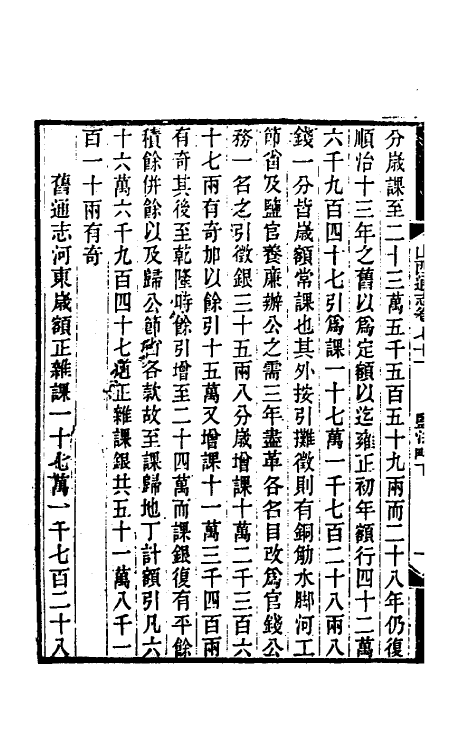 分歲課至二十三萬五千五百五十九兩而二十八年仍復
順治十三年之舊以爲定額以迄雍正初年額行四十二萬
六千九百四十七引爲課一十七萬一千七百二十八兩八
錢一分皆歲額常課也其外按引攤徵則有銅觔水脚河工
節省及鹽官養廉辦公之需三年盡革各名目改爲官錢公
務一名之引徵銀三十五兩八分歲增課十萬二千三百六
十七兩有奇加以餘引十五萬又增課十一萬三千四百兩
有奇其後至乾隆時餘引增至二十四萬而課銀復有平餘
積餘併餘以及歸公節省各款故至課歸地丁計額引凡六
十六萬六千九百四十七道正雜課銀共五十一萬八千一
百一十兩有奇
舊通志河東歲額正雜課一十七萬一千七百二十八
山西通志卷七十一 鹽法略下 一